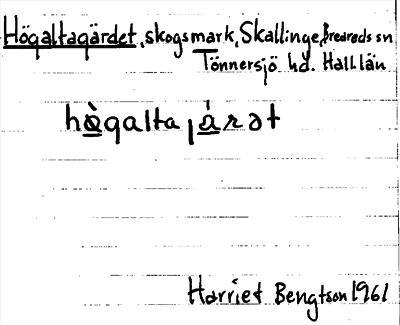 Högaltagärdet, skogsmark, Skallinge, Breareds sn
Tönnersjö hd. Hall. län
hò̲galta j á̲rət
Harriet Bengtson 1961